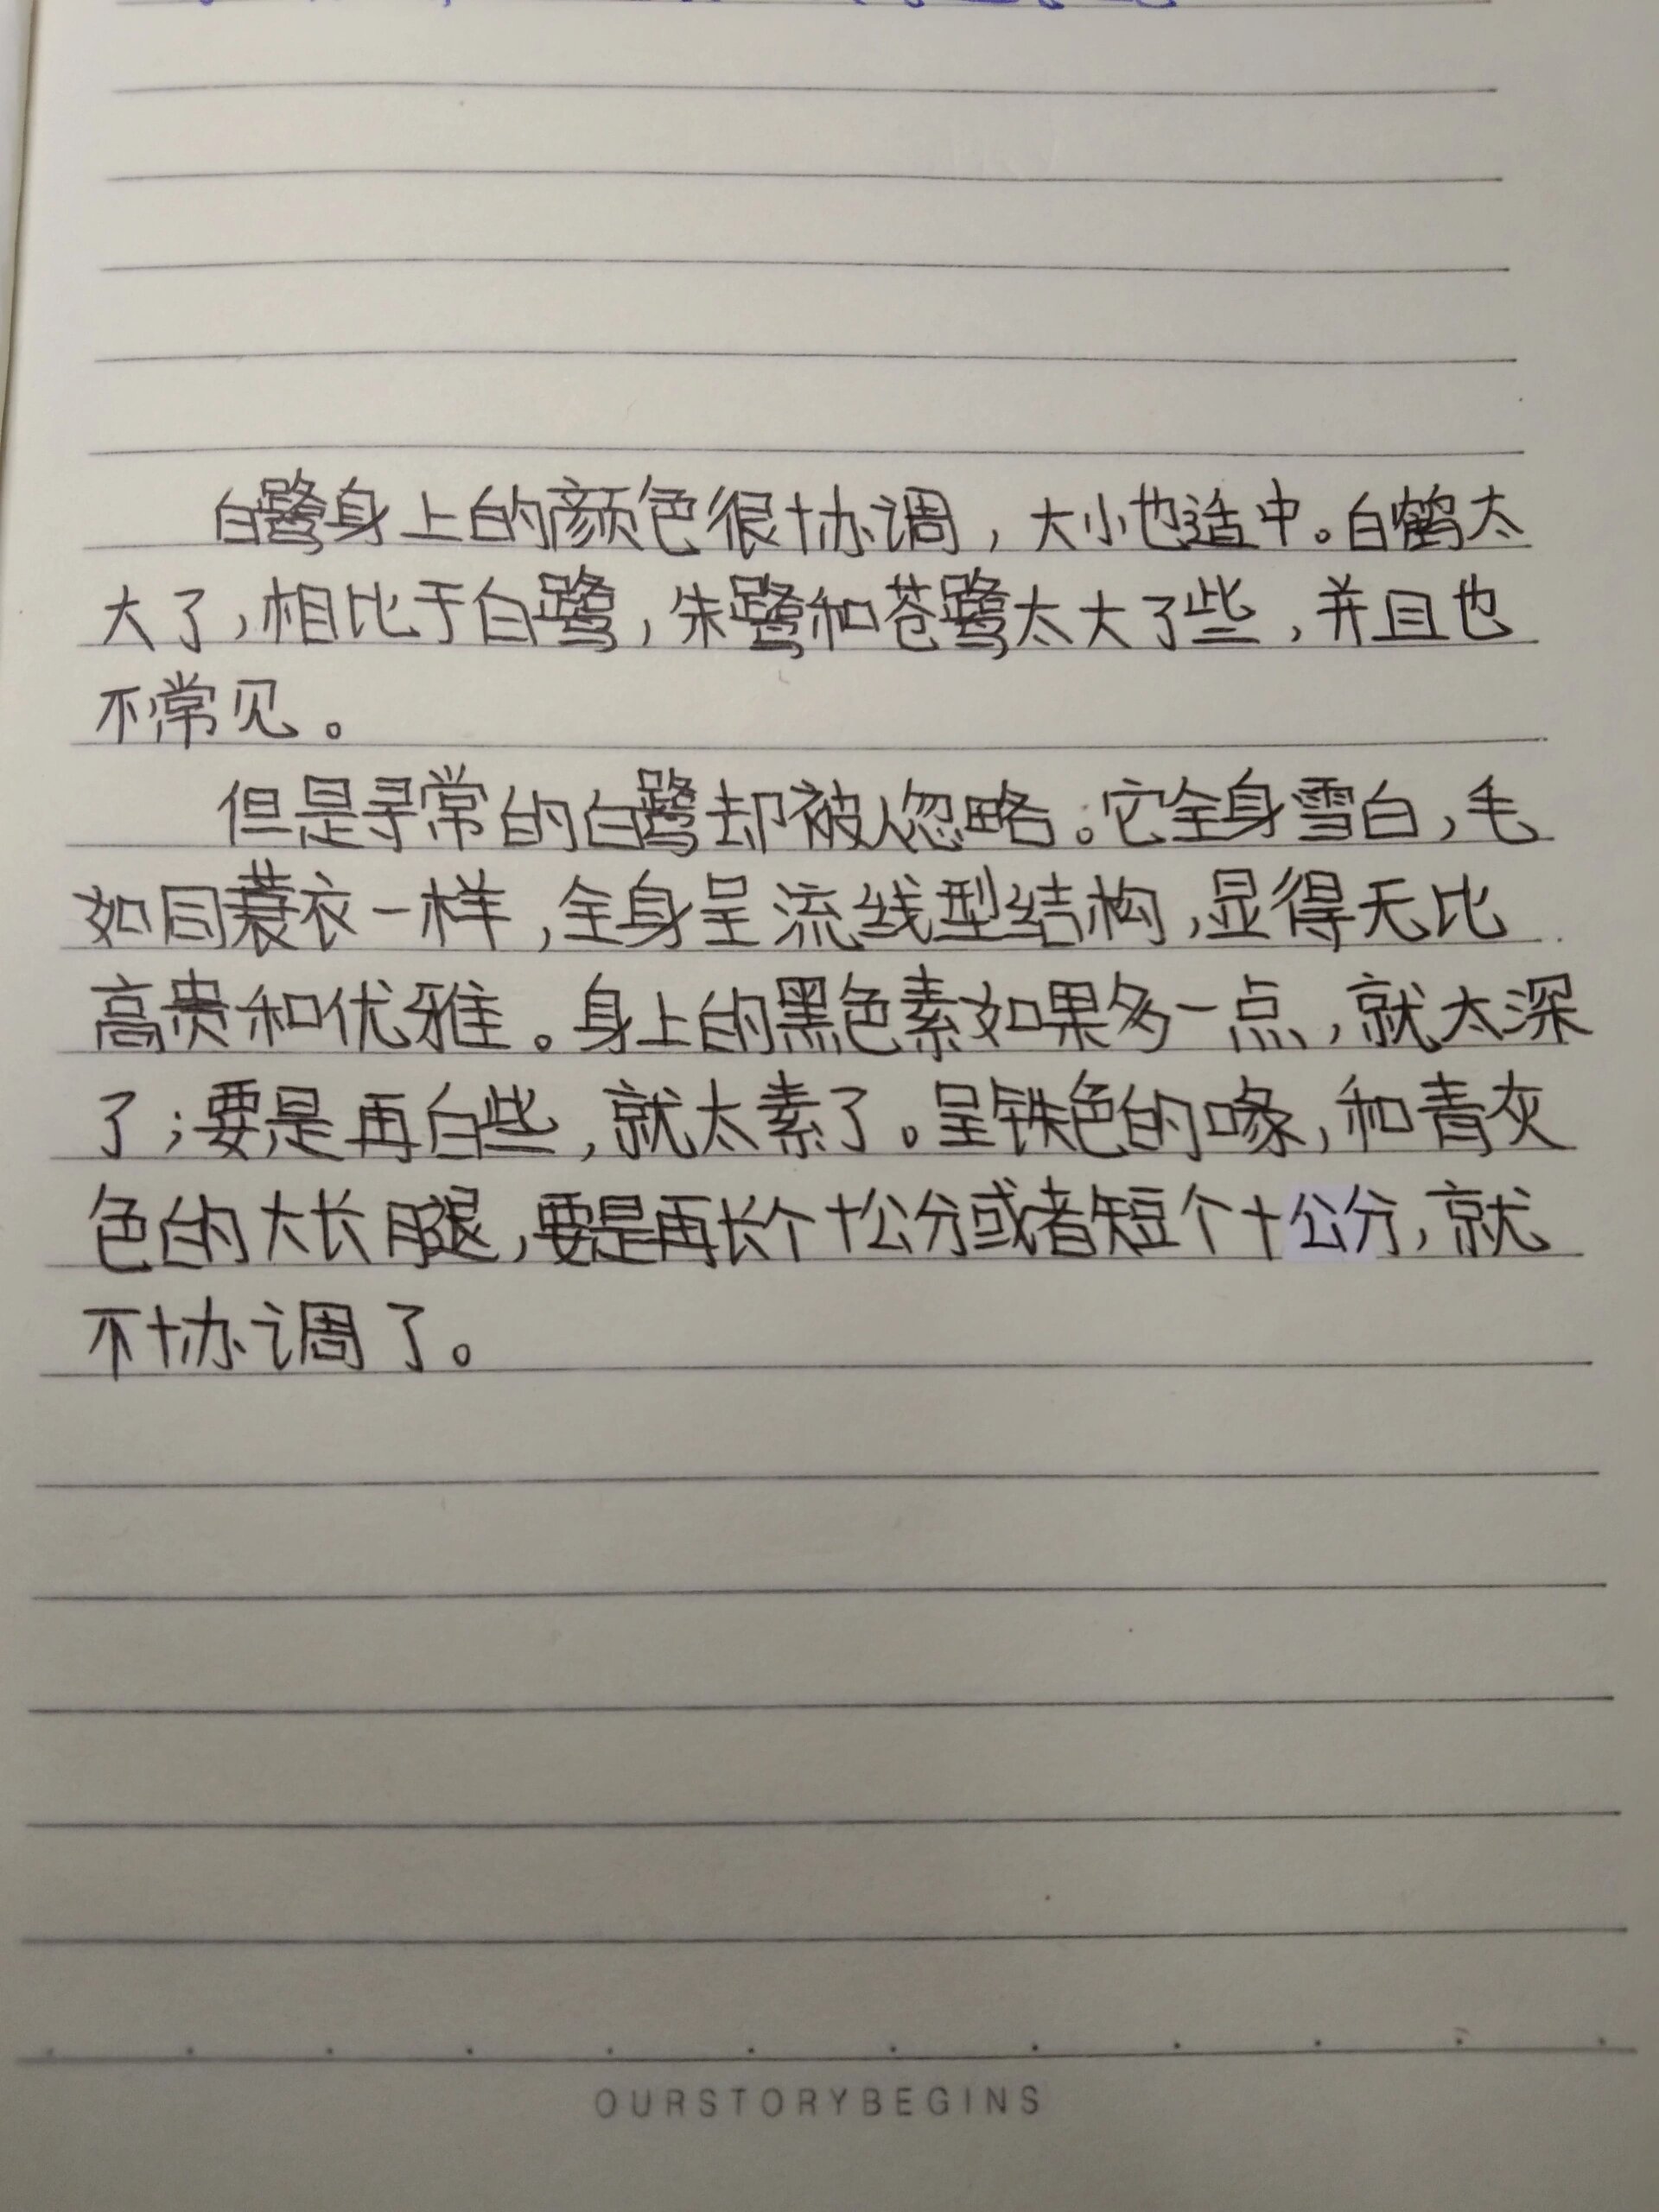 白鹭身上的颜色很协调，大小也适中。白鹤太
大了，相比于白鹭，朱鹭和苍鹭太大了些，并且也
不常见。
但是寻常的白鹭却被人忽略。它全身雪白，毛
如同蓑衣一样，全身呈流线型结构，显得无比
高贵和优雅。身上的黑色素如果多一点，就太深
了；要是再白些，就太素了。呈铁色的喙，和青灰
色的大长腿，要是再长个十公分或者短个十公分，就
不协调了。
OURSTORYBEGINS